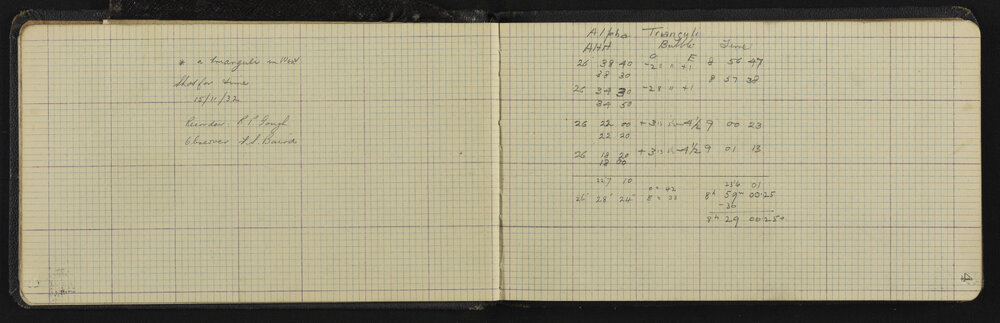 * α trianguli in West
Shot for time
15/11/32
Recorder: R P Gough
Observer F. S. Baird
Alpha Trianguli
AHH Bubble Time
O E
26 38 40 -28 " +1 8 56 47
38 30 8 57 38
26 34 30 -28 " +1
34 50
26 22 00 +3 -4½ 9 00 23
22 20
26 18 20 +3 -4½ 9 01 13
18 00
227 10 236 01
26° 28' 24" 8h 59m 00.25
-30
8h 29 00.25
4